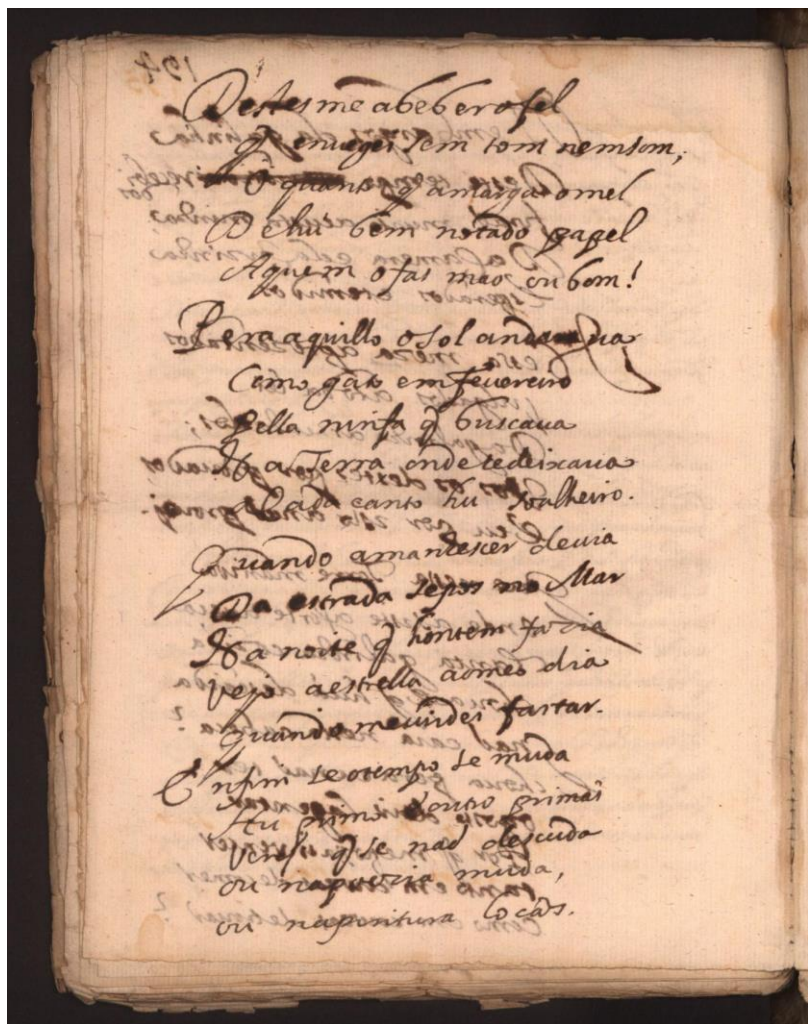 Destes me a beber o fel
q̃ enveges sem tom nem som;
O quanto q̃ amarga o mel
De hũ bem notado papel
Aquem o fas mao, ou bom!
Pera aquillo o sol andaua
Como gato em feuereiro
Pella ninfa q̃ buscaua
Na Terra onde te deixaua
Cada canto hũ soalheiro.
Quando amanhescer deuia
Da estrada se pos no Mar
Na noite q̃ hontem fazia
vejo a estrella ao meo dia
Quando me vindes fartar.
Enfim se o tempo se muda
Hu primo doutro primaĩ
q̃ se naõ descuda
ou na miuda,
ou na